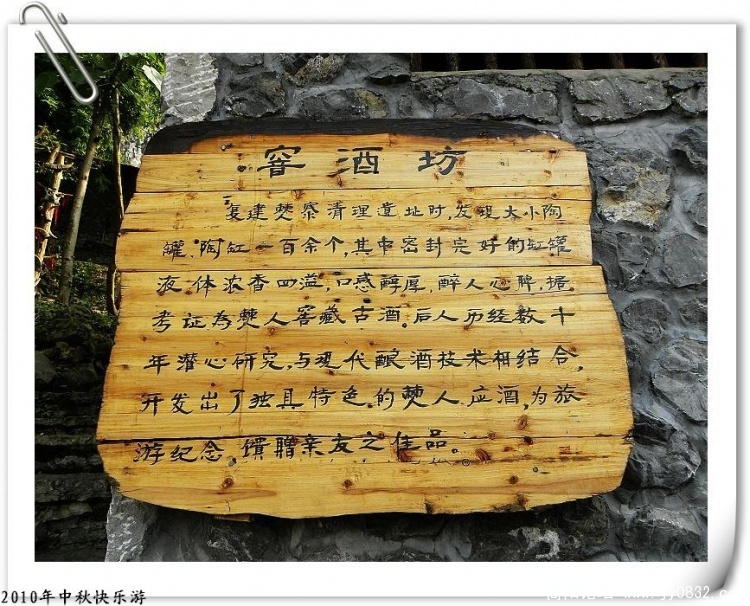 窖酒坊
复建僰寨清理遗址时,发现大小陶
罐、陶缸一百余个,其中密封完好的缸罐
液体浓香四溢,口感醇厚,醉人心脾,据
考证为僰人窖藏古酒。后人历经数十
年潜心研究,与现代酿酒技术相结合,
开发出了独具特色的僰人应酒,为旅
游纪念、馈赠亲友之佳品。
2010年中秋快乐游